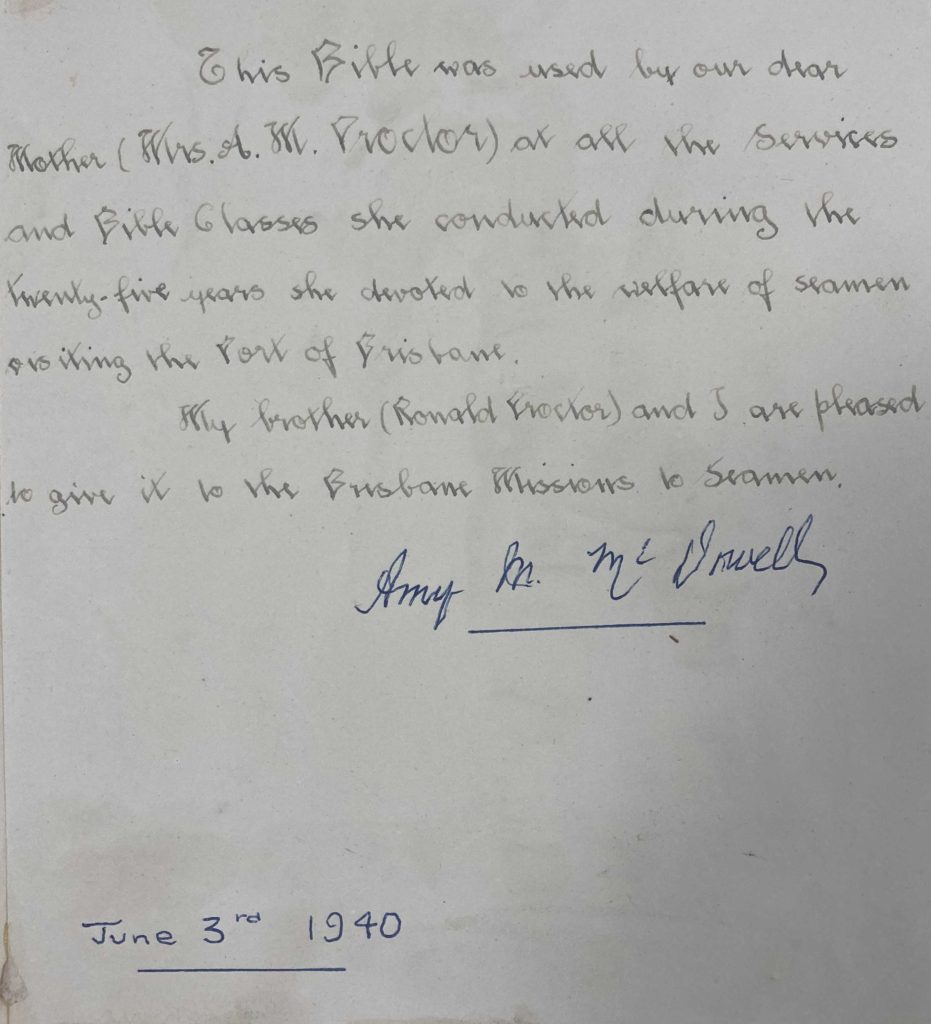 This Bible was used by our dear
Mother (Mrs. A. M. Proctor) at all the Services
and Bible Classes she conducted during the
twenty-five years she devoted to the welfare of seamen
visiting the Port of Brisbane.
My brother (Ronald Proctor) and I are pleased
to give it to the Brisbane Missions to Seamen.
Amy M. Mc Dowell
June 3rd 1940